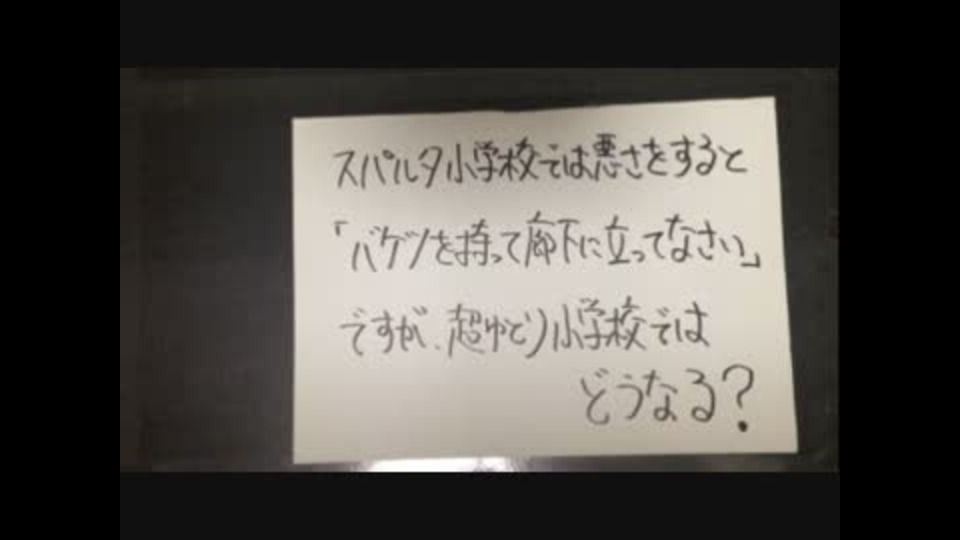 スパルタ小学校では悪さをすると
「バケツを持って廊下に立ってなさい」
ですが、超ゆとり小学校では
どうなる?